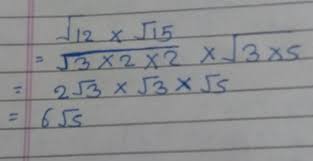 √12 × √15
= √3×2×2 × √3×5
= 2√3 × √3 × √5
= 6√5